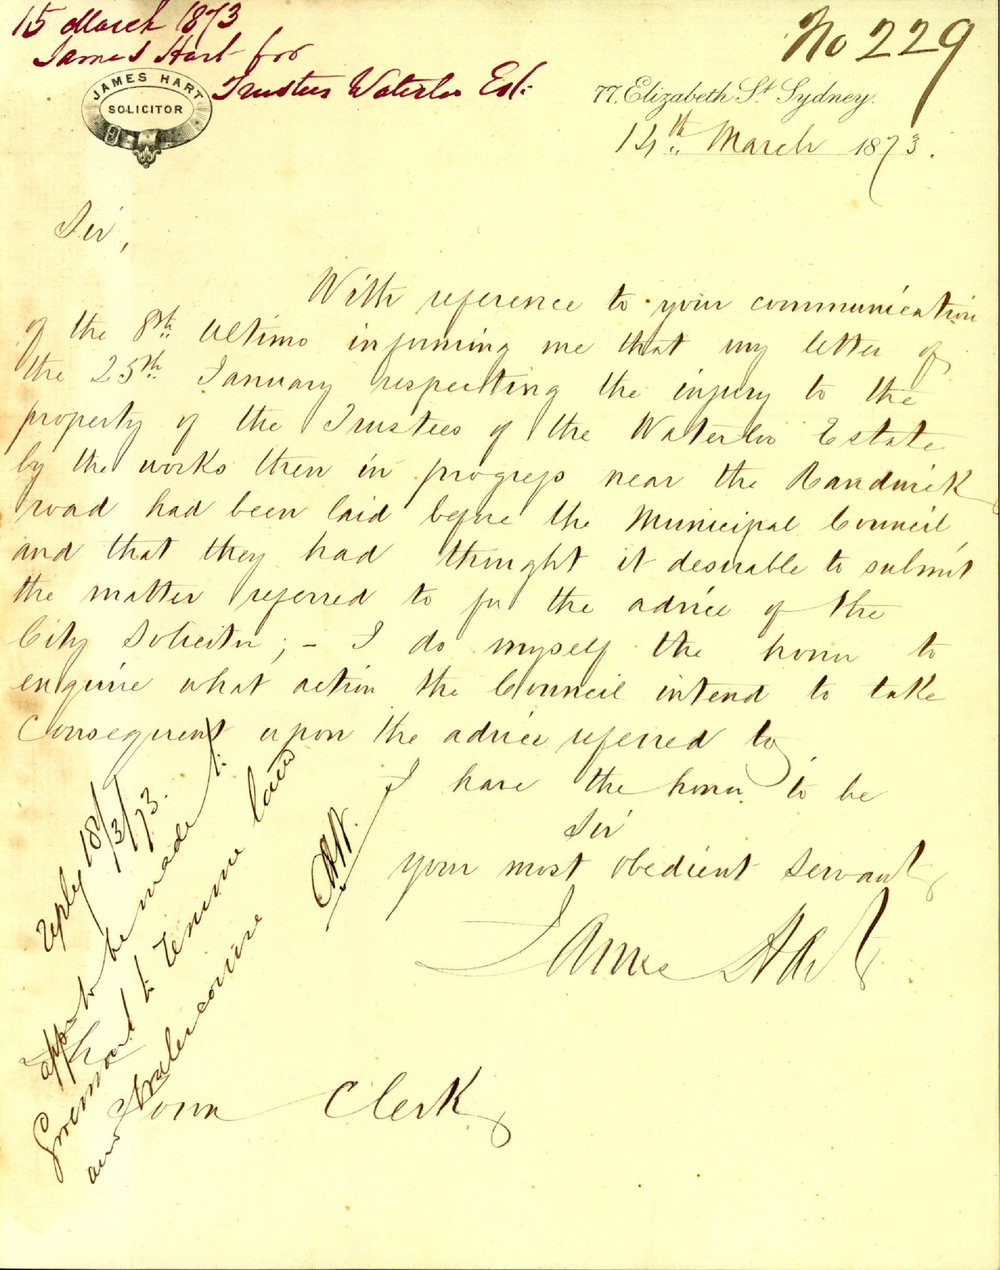 15 March 1873
James Hart for
Trustees Waterloo Est.
No 229
JAMES HART
SOLICITOR
77. Elizabeth St. Sydney.
14th March 1873.
Sir,
With reference to your communication
of the 8th Ultimo informing me that my letter of
the 25th January respecting the injury to the
property of the Trustees of the Waterloo Estate
by the works then in progress near the Randwick
road had been laid before the Municipal Council
and that they had thought it desirable to submit
the matter referred to for the advice of the
City Solicitor; - I do myself the honor to
enquire what action the Council intend to take
Consequent upon the advice referred to
I have the honor to be
Sir
your most obedient servant
James Hart
Town Clerk
reply 18/3/73.
to be made
Government to resume land
and watercourse